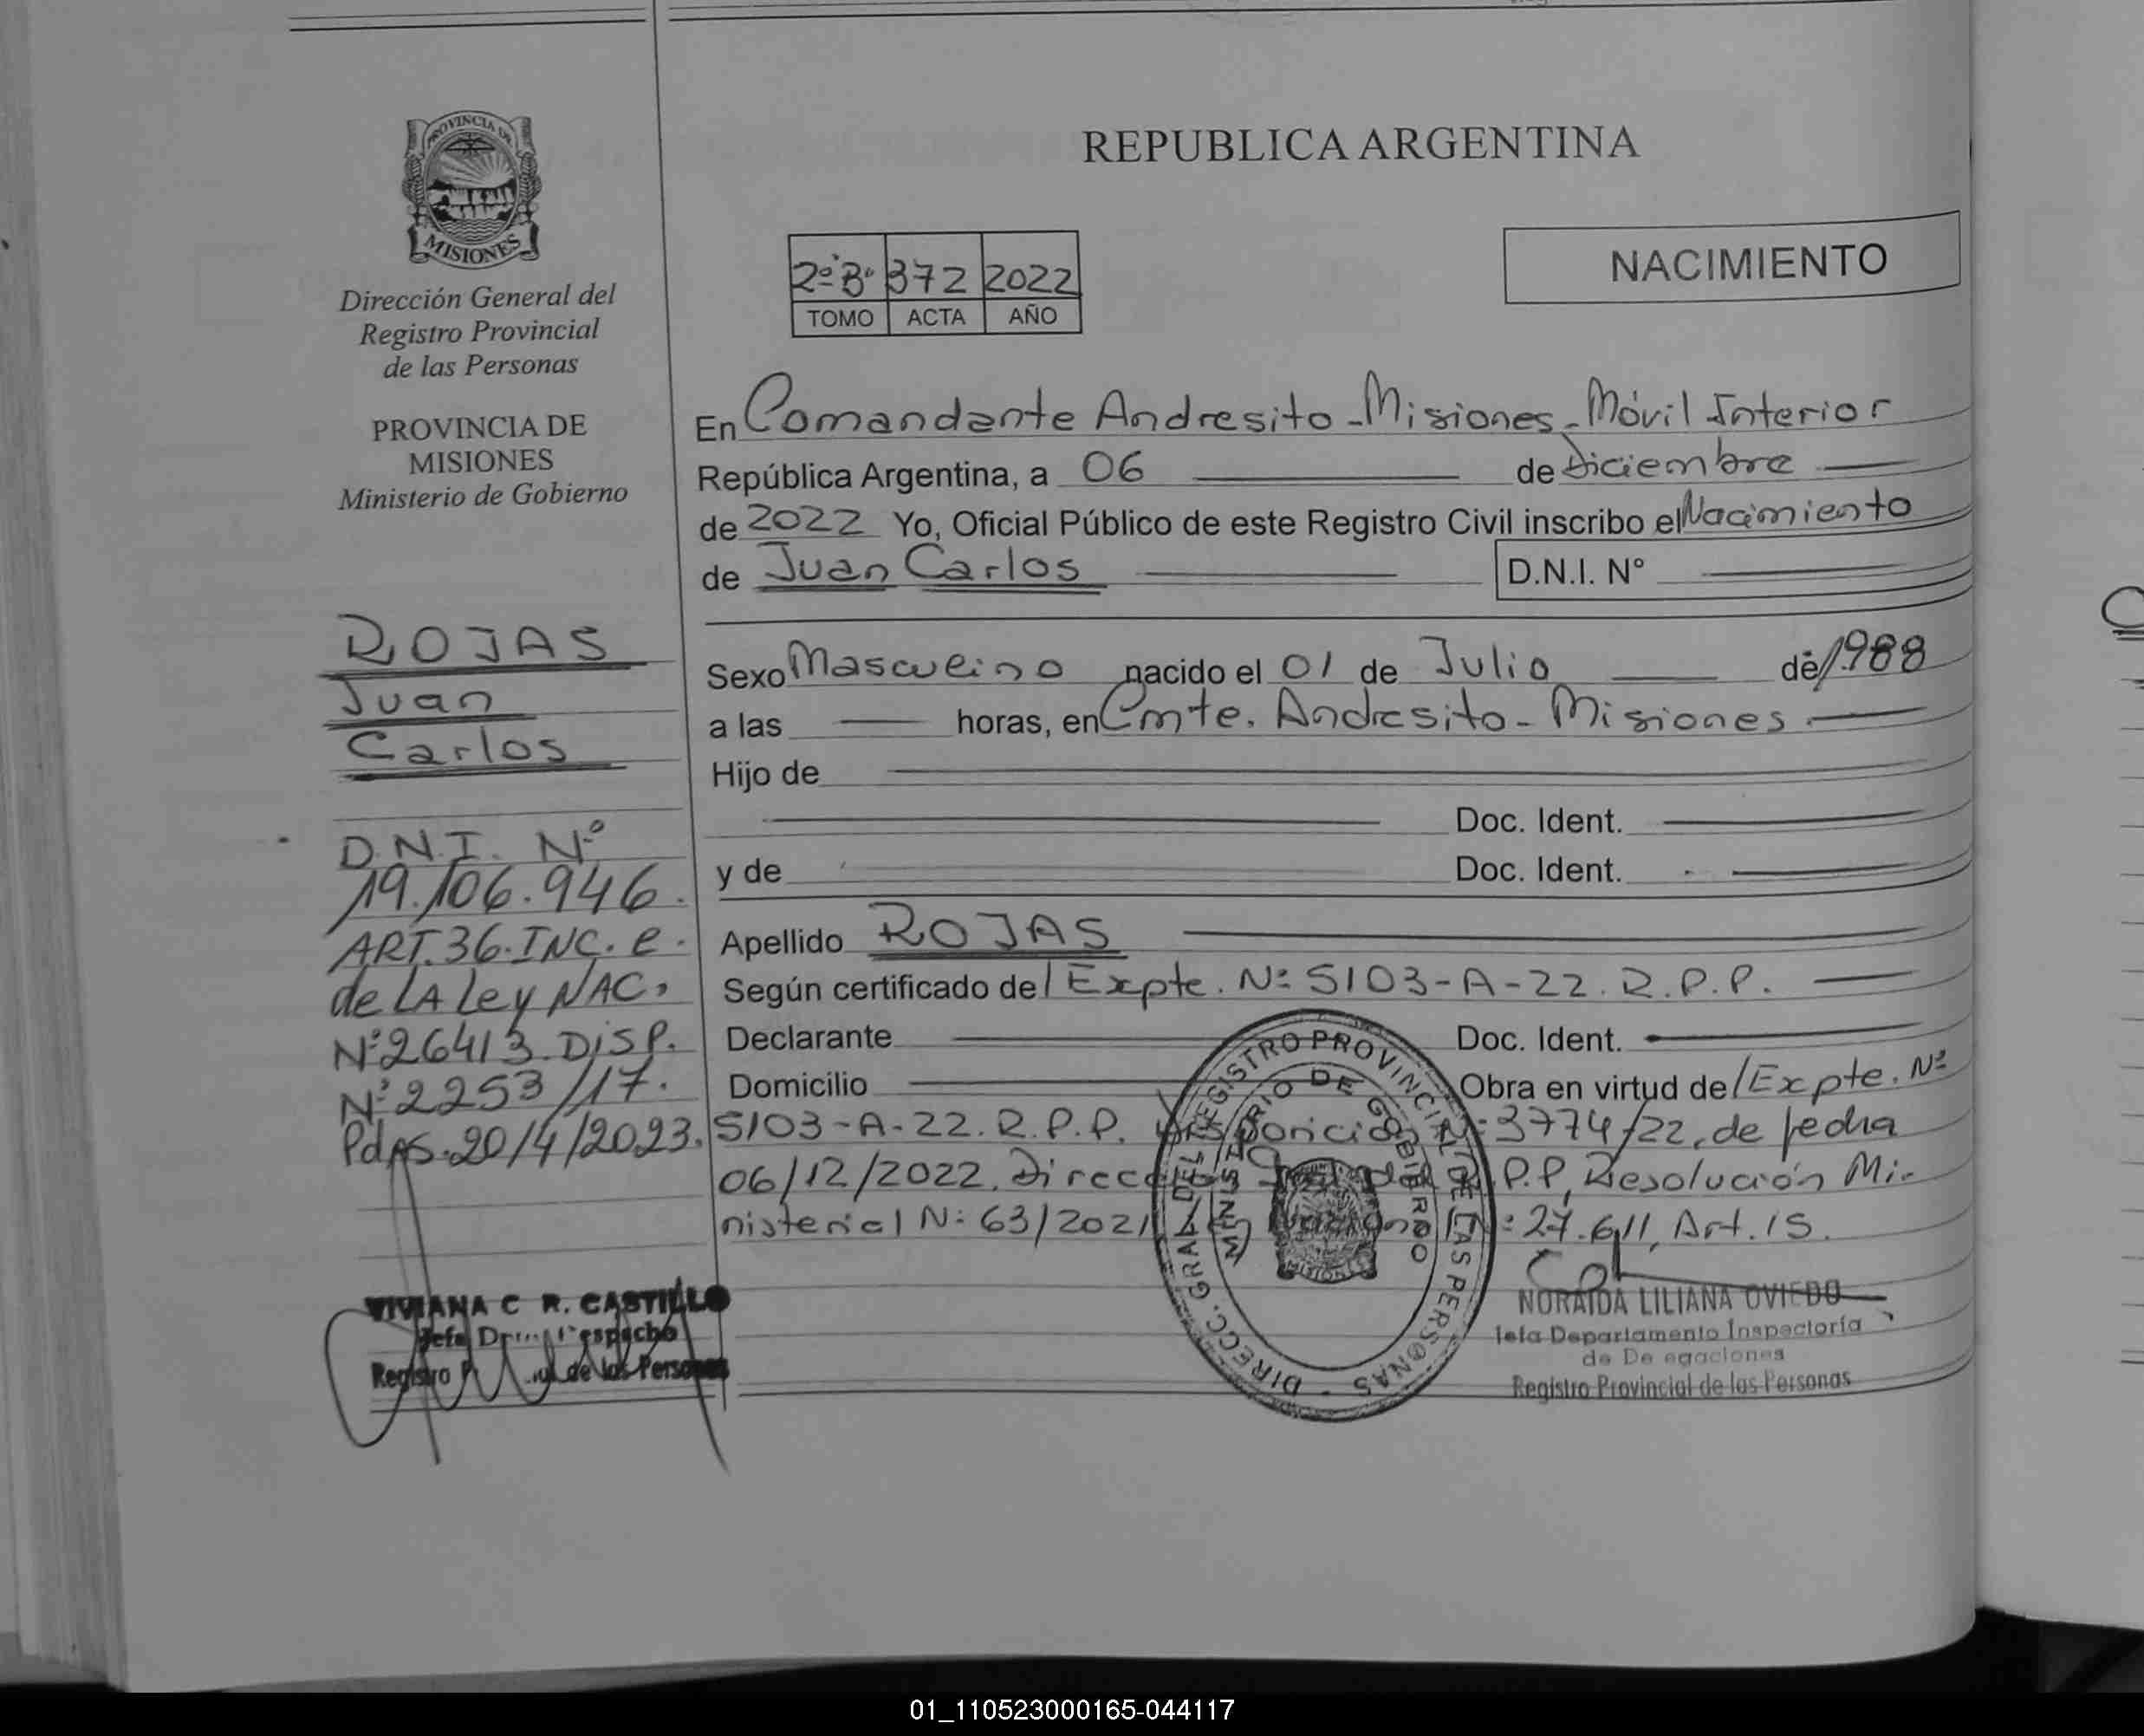 PROVINCIA DE
MISIONES
Dirección General del
Registro Provincial
de las Personas
PROVINCIA DE
MISIONES
Ministerio de Gobierno
ROJAS
Juan
Carlos
D.N.I. Nº
19.106.946.
ART.36.INC.e.
de LA Ley NAC.
Nº26413.DISP.
Nº2253/17.
Pdas.20/4/2023.
VIVIANA C R. CASTILLO
Jefa Despacho
Registro de las Personas
REPUBLICA ARGENTINA
2º Bº 372 2022
TOMO ACTA AÑO
NACIMIENTO
En Comandante Andresito-Misiones-Móvil Interior
República Argentina, a 06 de Diciembre
de 2022 Yo, Oficial Público de este Registro Civil inscribo el Nacimiento
de Juan Carlos D.N.I. Nº
Sexo Masculino nacido el 01 de Julio de 1988
a las horas, en Cmte. Andresito-Misiones
Hijo de
Doc. Ident.
y de Doc. Ident.
Apellido ROJAS
Según certificado de/ Expte. Nº 5103-A-22. R.P.P.
Declarante Doc. Ident.
Domicilio Obra en virtud de/Expte. Nº
5103-A-22. R.P.P. Disposición Nº:3774/22, de fecha
06/12/2022. Direcc. Gral. del R.P.P, Resolución Mi-
nisterial Nº 63/2021 Ley Nacional Nº:27.611, Art.15.
DIRECC. GRAL. DEL REGISTRO PROVINCIAL DE LAS PERSONAS -
MINISTERIO DE GOBIERNO
MISIONES
NORAIDA LILIANA OVIEDO
Jefa Departamento Inspectoría
de Delegaciones
Registro Provincial de las Personas
01_110523000165-044117